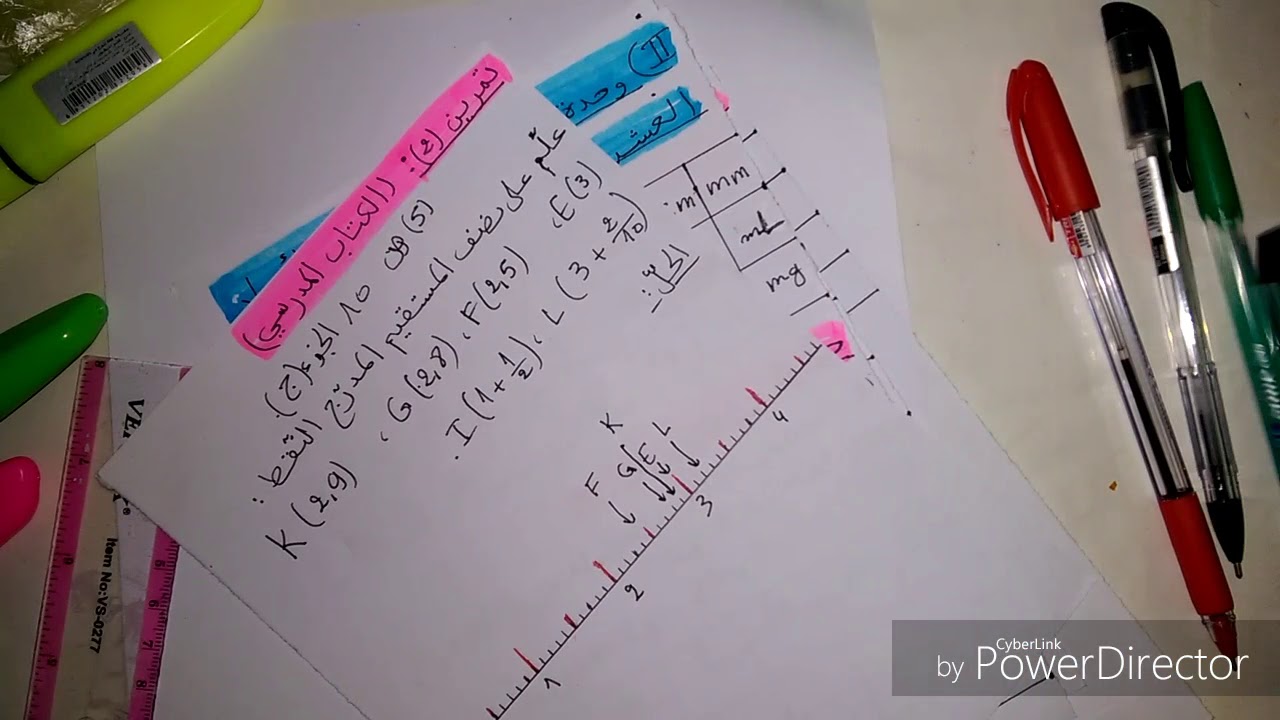 II) وحدة
العشر
mm
m
mg
تمرين (2): (الكتاب المدرسي)
(5) ص 10 الجزء (ج).
علّم على نصف المستقيم المدرّج النقط:
K (2,9) ، G (2,8) ، F (2,5) ، E (3)
. I (1 + 1/2) ، L (3 + 2/10)
الحل:
F G E L
K
1 2 3 4
Item No:VS-0277
CyberLink
by PowerDirector